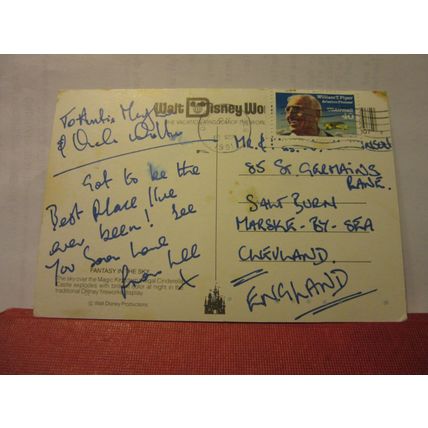 Walt Disney Wo
THE VACATION KINGDOM OF THE WORL
William T. Piper
Aviation Pioneer
USAirmail
40
1991
To Auntie
& Uncle
Got to be the
Best Place I've
ever been! See
you Soon Love
from Lee
X
FANTASY IN THE SKY
The sky over the Magic Kingdom's regal Cinderella
Castle explodes with color at night in the
traditional Disney fireworks display.
© Walt Disney Productions
MR. &
85 St GERMAINS
LANE.
SALTBURN
MARSKE-BY-SEA
CLEVLAND.
ENGLAND